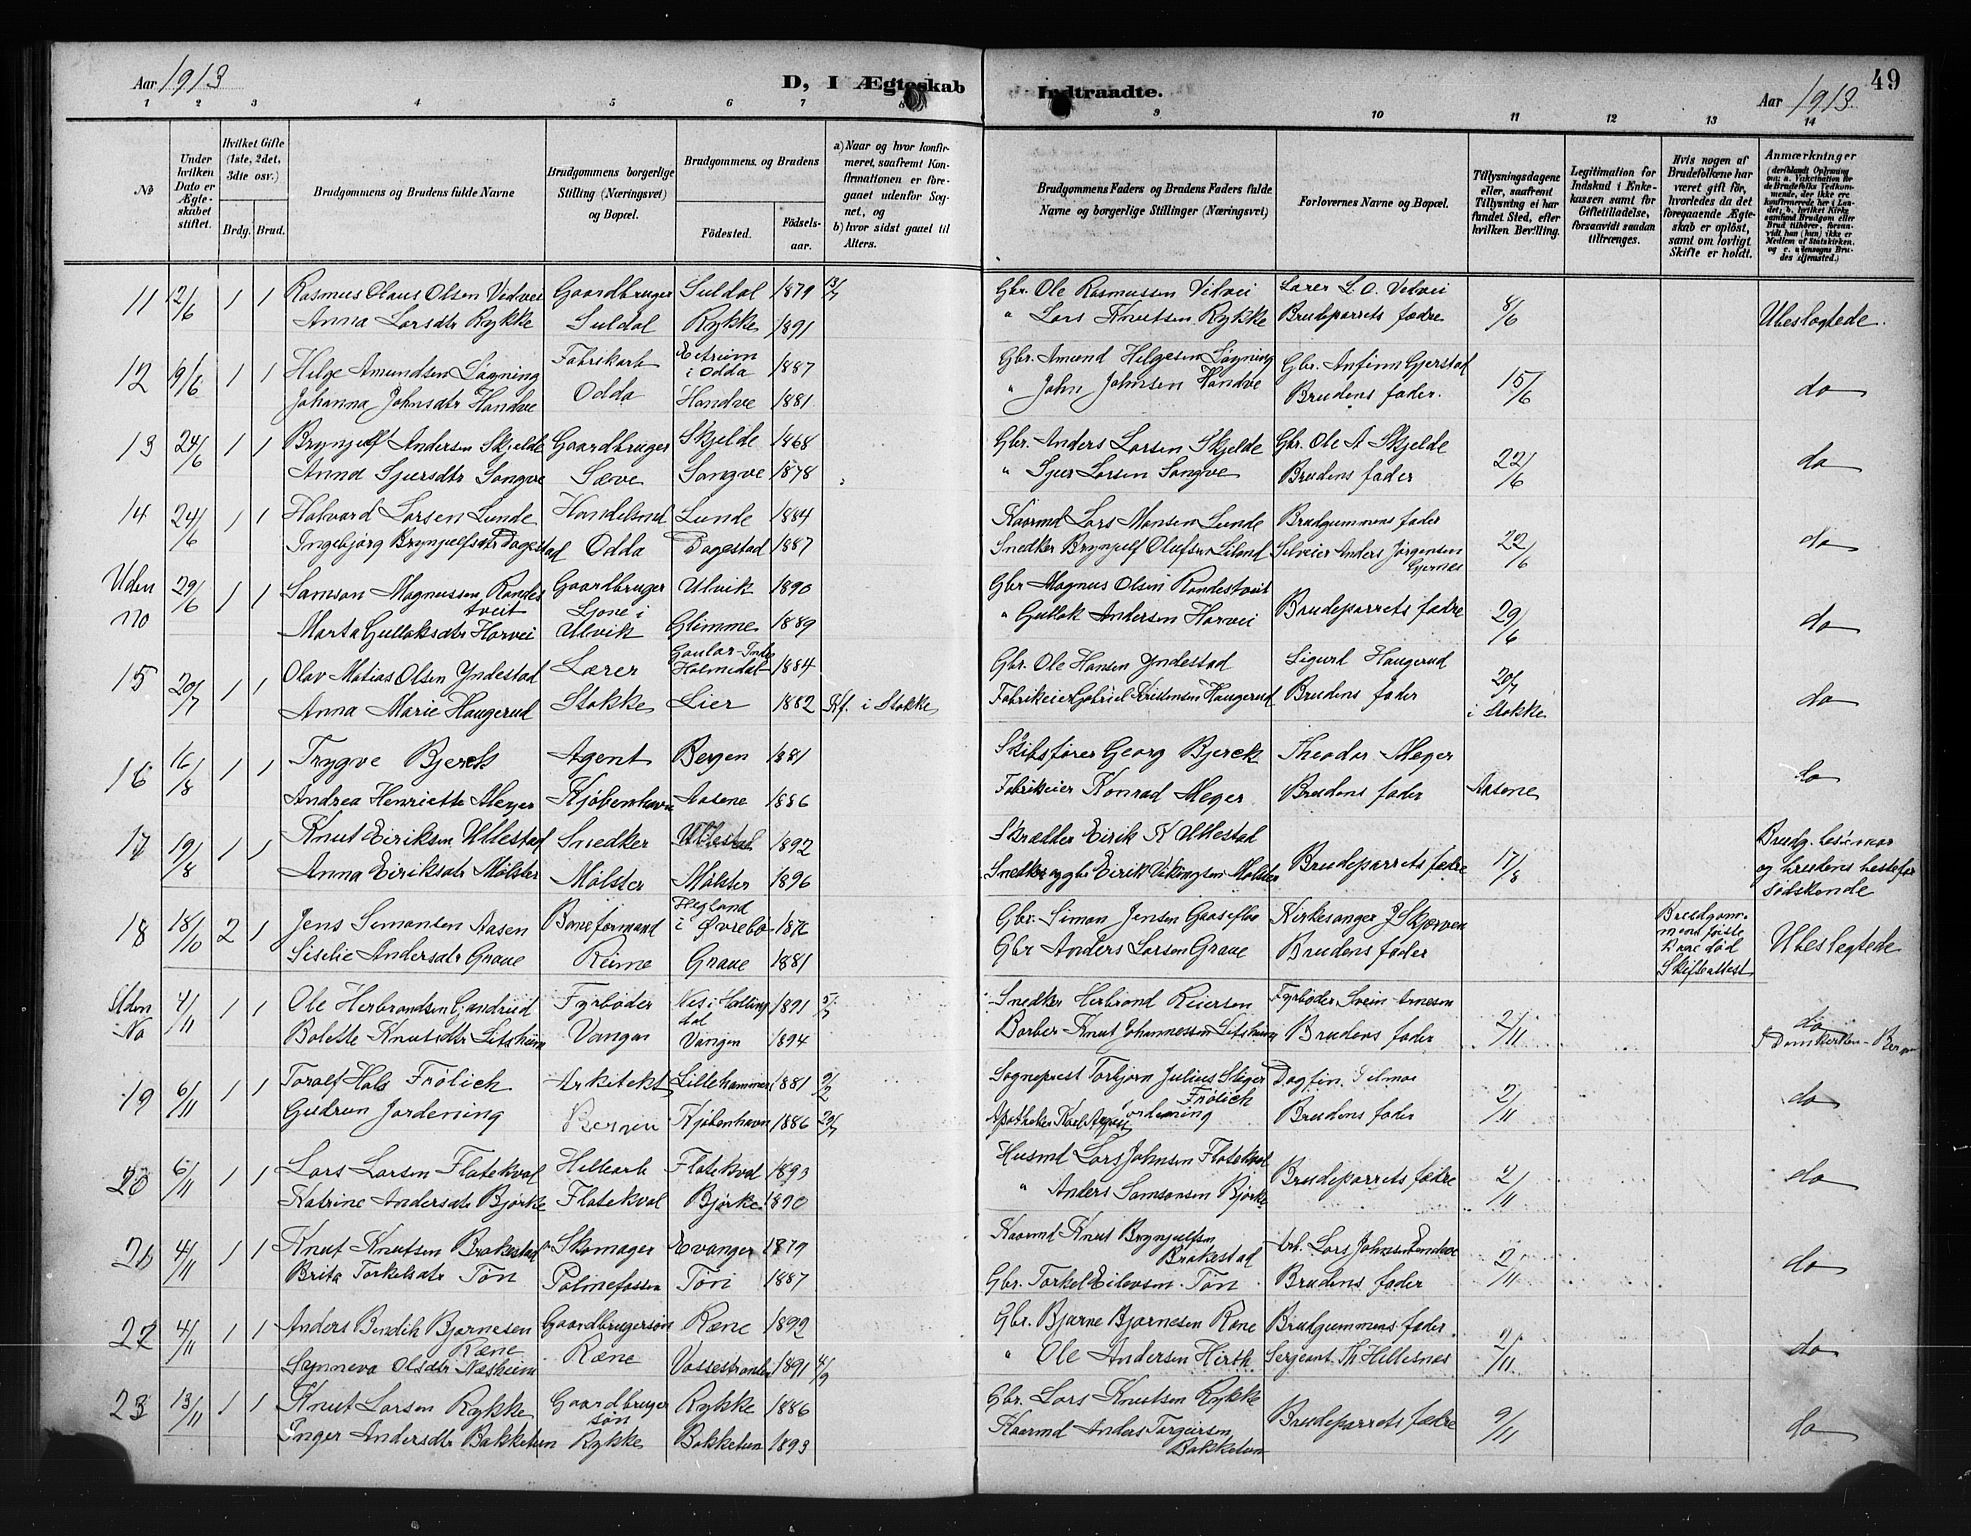 Aar 1913
D, I Ægteskab Indtraadte.
Aar 1913
49
1 2 3 4 5 6 7 8 9 10 11 12 13 14
No
Under hvilken Dato er Ægteskabet stiftet.
Hvilket Gifte (1ste, 2det, 3die osv.)
Brdg. Brud.
Brudgommens og Brudens fulde Navne
Brudgommens borgerlige Stilling (Næringsvei) og Bopæl.
Brudgommens og Brudens
Födested.
Födselsaar.
a) Naar og hvor konfirmeret, saafremt Konfirmationen er foregaaet udenfor Sognet, og
b) hvor sidst gaaet til Alters.
Brudgommens Faders og Brudens Faders fulde Navne og borgerlige Stillinger (Næringsvei)
Forlovernes Navne og Bopæl.
Tillysningsdagene eller, saafremt Tillysning ei har fundet Sted, efter hvilken Bevilling.
Legitimation for Indskud i Enkekassen samt for Giftetilladelse, forsaavidt saadan tiltrænges.
Hvis nogen af Brudefolkene har været gift før, hvorledes da det foregaaende Ægteskab er oplöst, samt om lovligt Skifte er holdt.
Anmærkninger
11 12/6 1 1 Rasmus Olaus Olsen Vidvei Gaardbruger Suldal 1879 13/7 Gbr. Ole Rasmussen Vidvei Lærer L. O. Vidvei 8/6 Ubeslegtede.
Anna Larsdtr Rykke Suldal Rykke 1891 " Lars Knutsen Rykke Brudeparrets fædre
12 19/6 1 1 Helge Amundsen Løgning Fabrikarb Eitreim i Odda 1887 Gbr. Amund Helgesen Løgning Gbr. Anfinn Gjerstad 15/6 do
Johanna Johnsdtr Handve Odda Handve 1881 " John Johnsen Handve Brudens fader.
13 24/6 1 1 Brynjulf Andersen Skjelde Gaardbruger Skjelde 1868 Gbr. Anders Larsen Skjelde Gbr. Ole A Skjelde 22/6 do
Anna Sjursdtr Songve Sæve Songve 1878 " Sjur Larsen Songve Brudens fader
14 24/6 1 1 Halvard Larsen Lunde Handelsmd Lunde 1884 Kaarmd Lars Monsen Lunde Brudgummens fader 22/6 do
Ingebjørg Brynjulfsdtr Dagestad Odda Dagestad 1887 Snedker Brynjulf Olufsen Liland Selveier Anders Jørgensen Gjernes
Uden no 29/6 1 1 Samson Magnussen Randestveit Gaardbruger Ulvik 1890 Gbr Magnus Olsen Randestveit Brudeparrets fædre 29/6 do
Marta Gulleksdtr Horvei Ljone i Ulvik Glimme 1889 " Gullek Andersen Horvei
15 20/7 1 1 Olav Matias Olsen Yndestad Lærer Holmedal 1884 Gbr. Ole Hansen Yndestad Sigurd Haugerud 20/7 i Stokke do
Anna Marie Haugerud Stokke Lier 1882 Kf. i Stokke Fabrikeier Gabriel Kristensen Haugerud Brudens fader
16 16/8 1 1 Trygve Bjerck Agent Bergen 1881 Skibsfører Georg Bjerck Theodor Meyer Aasene do
Andrea Henriette Meyer Kjøbenhavn Aasene 1886 Fabrikeier Konrad Meyer Brudens fader
17 19/8 1 1 Knut Eiriksen Ullestad Snedker Ullestad 1892 Skrædder Eirik K Ullestad Brudeparrets fædre 17/8
Anna Eiriksdtr Mølster Mølster Mølster 1896 Snedker og gbr Eirik Vikingsen Mølster
og brudens bestefar sødskende
18 18/10 2 1 Jens Simonsen Aasen Baneformand Hegland i Øvrebø 1876 Gbr. Simon Jensen Gaaseflaa Kirkesanger J Skjerven Brudgommens første kone død Skifteattest Ubeslegtede
Siselie Andersdtr Graue Reime Graue 1881 Gbr Anders Larsen Graue Brudens fader
Uden No 4/11 1 1 Ole Herbrandsen Gandrud Fyrbøder Nes i Hallingdal 1891 5/7 Snedker Herbrand Reiersen Fyrbøder Svein Arnesen 2/11 do
Bolette Knutsdtr Litsheim Vangen Vangen 1894 Barber Knut Johannessen Litsheim Brudens fader
19 6/11 1 1 Toralf Hals Frølich Arkitekt Lillehammer 1881 Sogneprest Torbjørn Julius Steger Frølich Dagfin Silmer 2/11 do
Gudrun Jordening Bergen Kjøbenhavn 1886 Apotheker Karl August Jordening Brudens fader
20 6/11 1 1 Lars Larsen Flatekval Hellearb Flatekval 1893 Husmd Lars Johnsen Flatekval Brudeparrets fædre 2/11 do
Katrine Andersdtr Bjørke Flatekval Bjørke 1890 " Anders Samsonsen Bjørke
21 4/11 1 1 Knut Knutsen Brakestad Skomager Evanger 1879 Kaarmd Knut Brynjulfsen Brakestad Arb. Lars Johnsen Endeve 2/11 do
Brita Torkelsdtr Tøn Palmefossen Tøn 1887 Gbr. Torkel Eilevsen Tøn Brudens fader
22 4/11 1 1 Anders Bendik Bjørnesen Ræne Gaardbrugersøn Ræne 1892 Gbr. Bjarne Bjarnesen Ræne Brudgummens fader 2/11 do
Synneva Olsdtr Næsheim Ræne Vossestranden 1891 4/9 " Ole Andersen Hirth Sergeant Th Hellesnæs
23 13/11 1 1 Knut Larsen Rykke Gaardbrugersøn Rykke 1886 Gbr. Lars Knutsen Rykke Brudeparrets fædre 9/11 do
Inger Andersdtr Bakketun Rykke Bakketun 1893 Kaarmd Anders Torgeirsen Bakketun